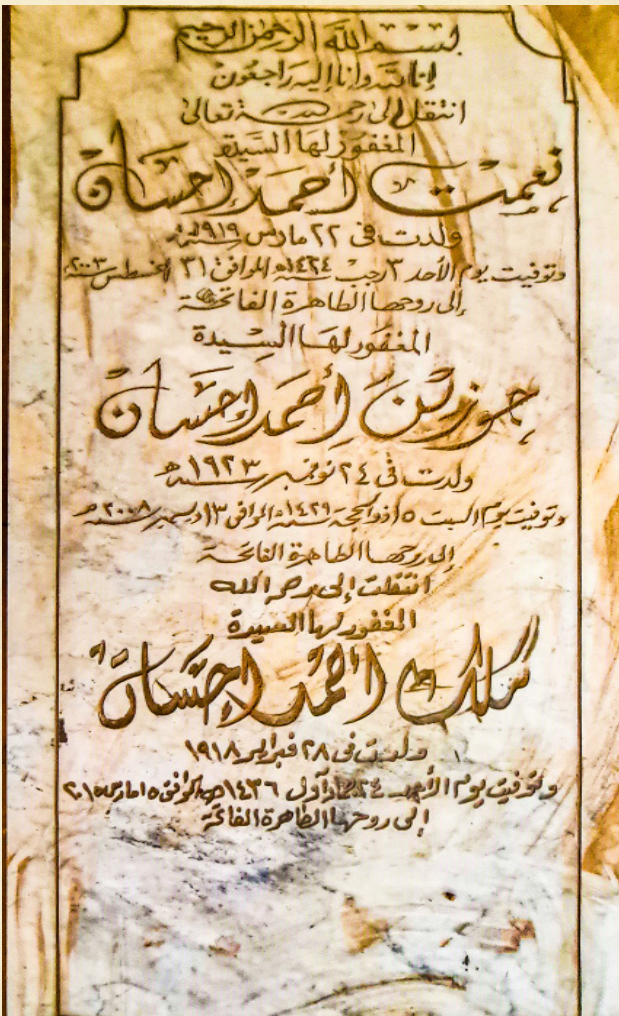 بسم الله الرحمن الرحيم
إنا لله وانا إليه راجعون
انتقل إلى رحمة الله تعالى
المغفور لها السيدة
نعمت أحمد إحسان
ولدت في ٢٢ مارس سنة ١٩١٩
وتوفيت يوم الأحد ٣ رجب سنة ١٤٢٤ه الموافق ٣١ أغسطس سنة ٢٠٠٣
إلى روحها الطاهرة الفاتحة
المغفور لها السيدة
جوزين أحمد إحسان
ولدت في ٢٤ نوفمبر سنة ١٩٢٣م
وتوفيت يوم السبت ١٥ ذو الحجة سنة ١٤٢٩ه الموافق ١٣ ديسمبر سنة ٢٠٠٨م
إلى روحها الطاهرة الفاتحة
انتقلت إلى رحمة الله
المغفور لها السيدة
ملك أحمد إحسان
ولدت في ٢٨ فبراير ١٩١٨
وتوفيت يوم الأحد ٢٤ جماد أول ١٤٣٦ الموافق ١٥ مارس ٢٠١٥
إلى روحها الطاهرة الفاتحة